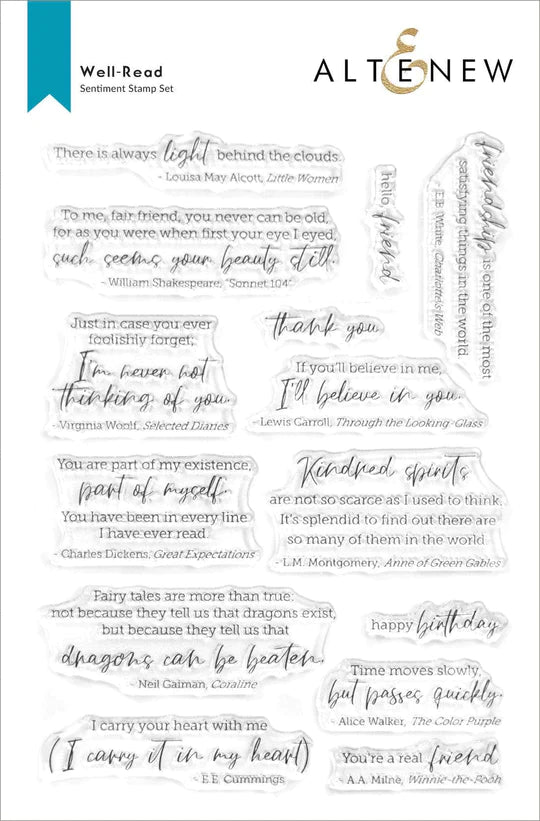 Well-Read
Sentiment Stamp Set
ALTENEW
There is always light behind the clouds.
- Louisa May Alcott, Little Women
To me, fair friend, you never can be old,
for as you were when first your eye I eyed,
such seems your beauty still.
- William Shakespeare, "Sonnet 104"
hello friend
friendship is one of the most
satisfying things in the world.
- E.B. White, Charlotte's Web
Just in case you ever
foolishly forget;
I'm never not
thinking of you.
- Virginia Woolf, Selected Diaries
thank you
If you'll believe in me,
I'll believe in you.
- Lewis Carroll, Through the Looking-Glass
You are part of my existence,
part of myself.
You have been in every line
I have ever read.
- Charles Dickens, Great Expectations
Kindred spirits
are not so scarce as I used to think.
It's splendid to find out there are
so many of them in the world.
- L.M. Montgomery, Anne of Green Gables
Fairy tales are more than true:
not because they tell us that dragons exist,
but because they tell us that
dragons can be beaten.
- Neil Gaiman, Coraline
happy birthday
Time moves slowly,
but passes quickly.
- Alice Walker, The Color Purple
I carry your heart with me
(I carry it in my heart)
- E.E. Cummings
You're a real friend
- A.A. Milne, Winnie-the-Pooh